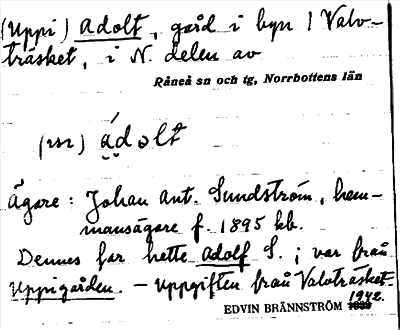 (Uppi) Adolt, gård i byn i Valv-
träsket, i N. delen av
Råneå sn och tg, Norrbottens län
ádolt
Ägare: Johan Ant. Sundström, hem-
mansägare f. 1895 kb.
Dennes far hette Adolf S.; var från
Uppigården. - Uppgiften från Valvträsket.
EDVIN BRÄNNSTRÖM 1942.